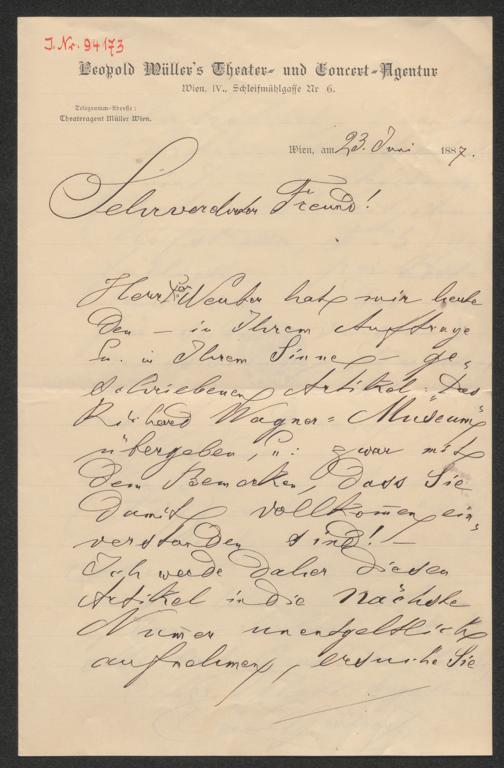 J. Nr. 94173
Leopold Müller's Theater- und Concert-Agentur
Wien, IV., Schleifmühlgasse Nr 6.
Telegramm-Adresse:
Theateragent Müller Wien.
Wien, am 23. Juni 1887.
Sehrverehrter Freund!
Herr hat mir heute
den – in Ihrem Auftrage
u. in Ihrem Sinne – ge-
schriebenen Artikel: „Das
Richard Wagner-Museum“
übergeben, u: zwar mit
dem Bemerken, dass Sie
damit vollkom̅en ein-
verstanden sind! –
Ich werde daher diesen
Artikel in die nächste
Num̅er unentgeltlich
aufnehmen, ersuche Sie